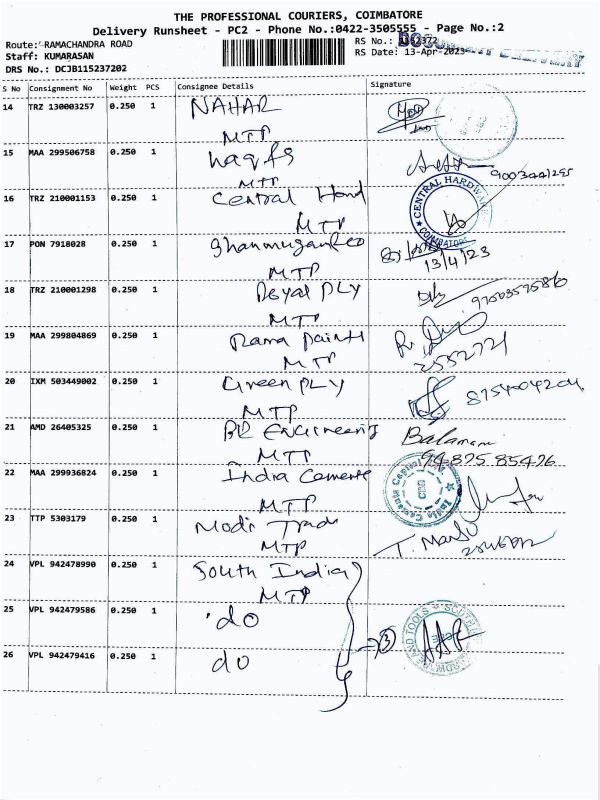 THE PROFESSIONAL COURIERS, COIMBATORE
Delivery Runsheet - PC2 - Phone No.:0422-3505555 - Page No.:2
Route: RAMACHANDRA ROAD
RS No.:
Staff: KUMARASAN
RS Date: 13-Apr-2023
DRS No.: DCJB115237202
S No Consignment No Weight PCS Consignee Details Signature
14 TRZ 130003257 0.250 1 NAHAR
MTP
15 MAA 299506758 0.250 1
MTP
9003441295
16 TRZ 210001153 0.250 1 Central Hard
MTP
CENTRAL HARDWARE
COIMBATORE
17 PON 7918028 0.250 1
MTP
13/4/23
18 TRZ 210001298 0.250 1 Royal PLY
MTP
19 MAA 299804869 0.250 1 Rama Paints
MTP
2552721
20 IXM 503449002 0.250 1 Green PLY
MTP
21 AMD 26405325 0.250 1 Engineering
MTP
94875 85426
22 MAA 299936824 0.250 1 India Cements
MTP
India Cements Capital
23 TTP 5303179 0.250 1 Modi Trade
MTP
24 VPL 942478990 0.250 1 South India
MTP
25 VPL 942479586 0.250 1 do
26 VPL 942479416 0.250 1 do
3